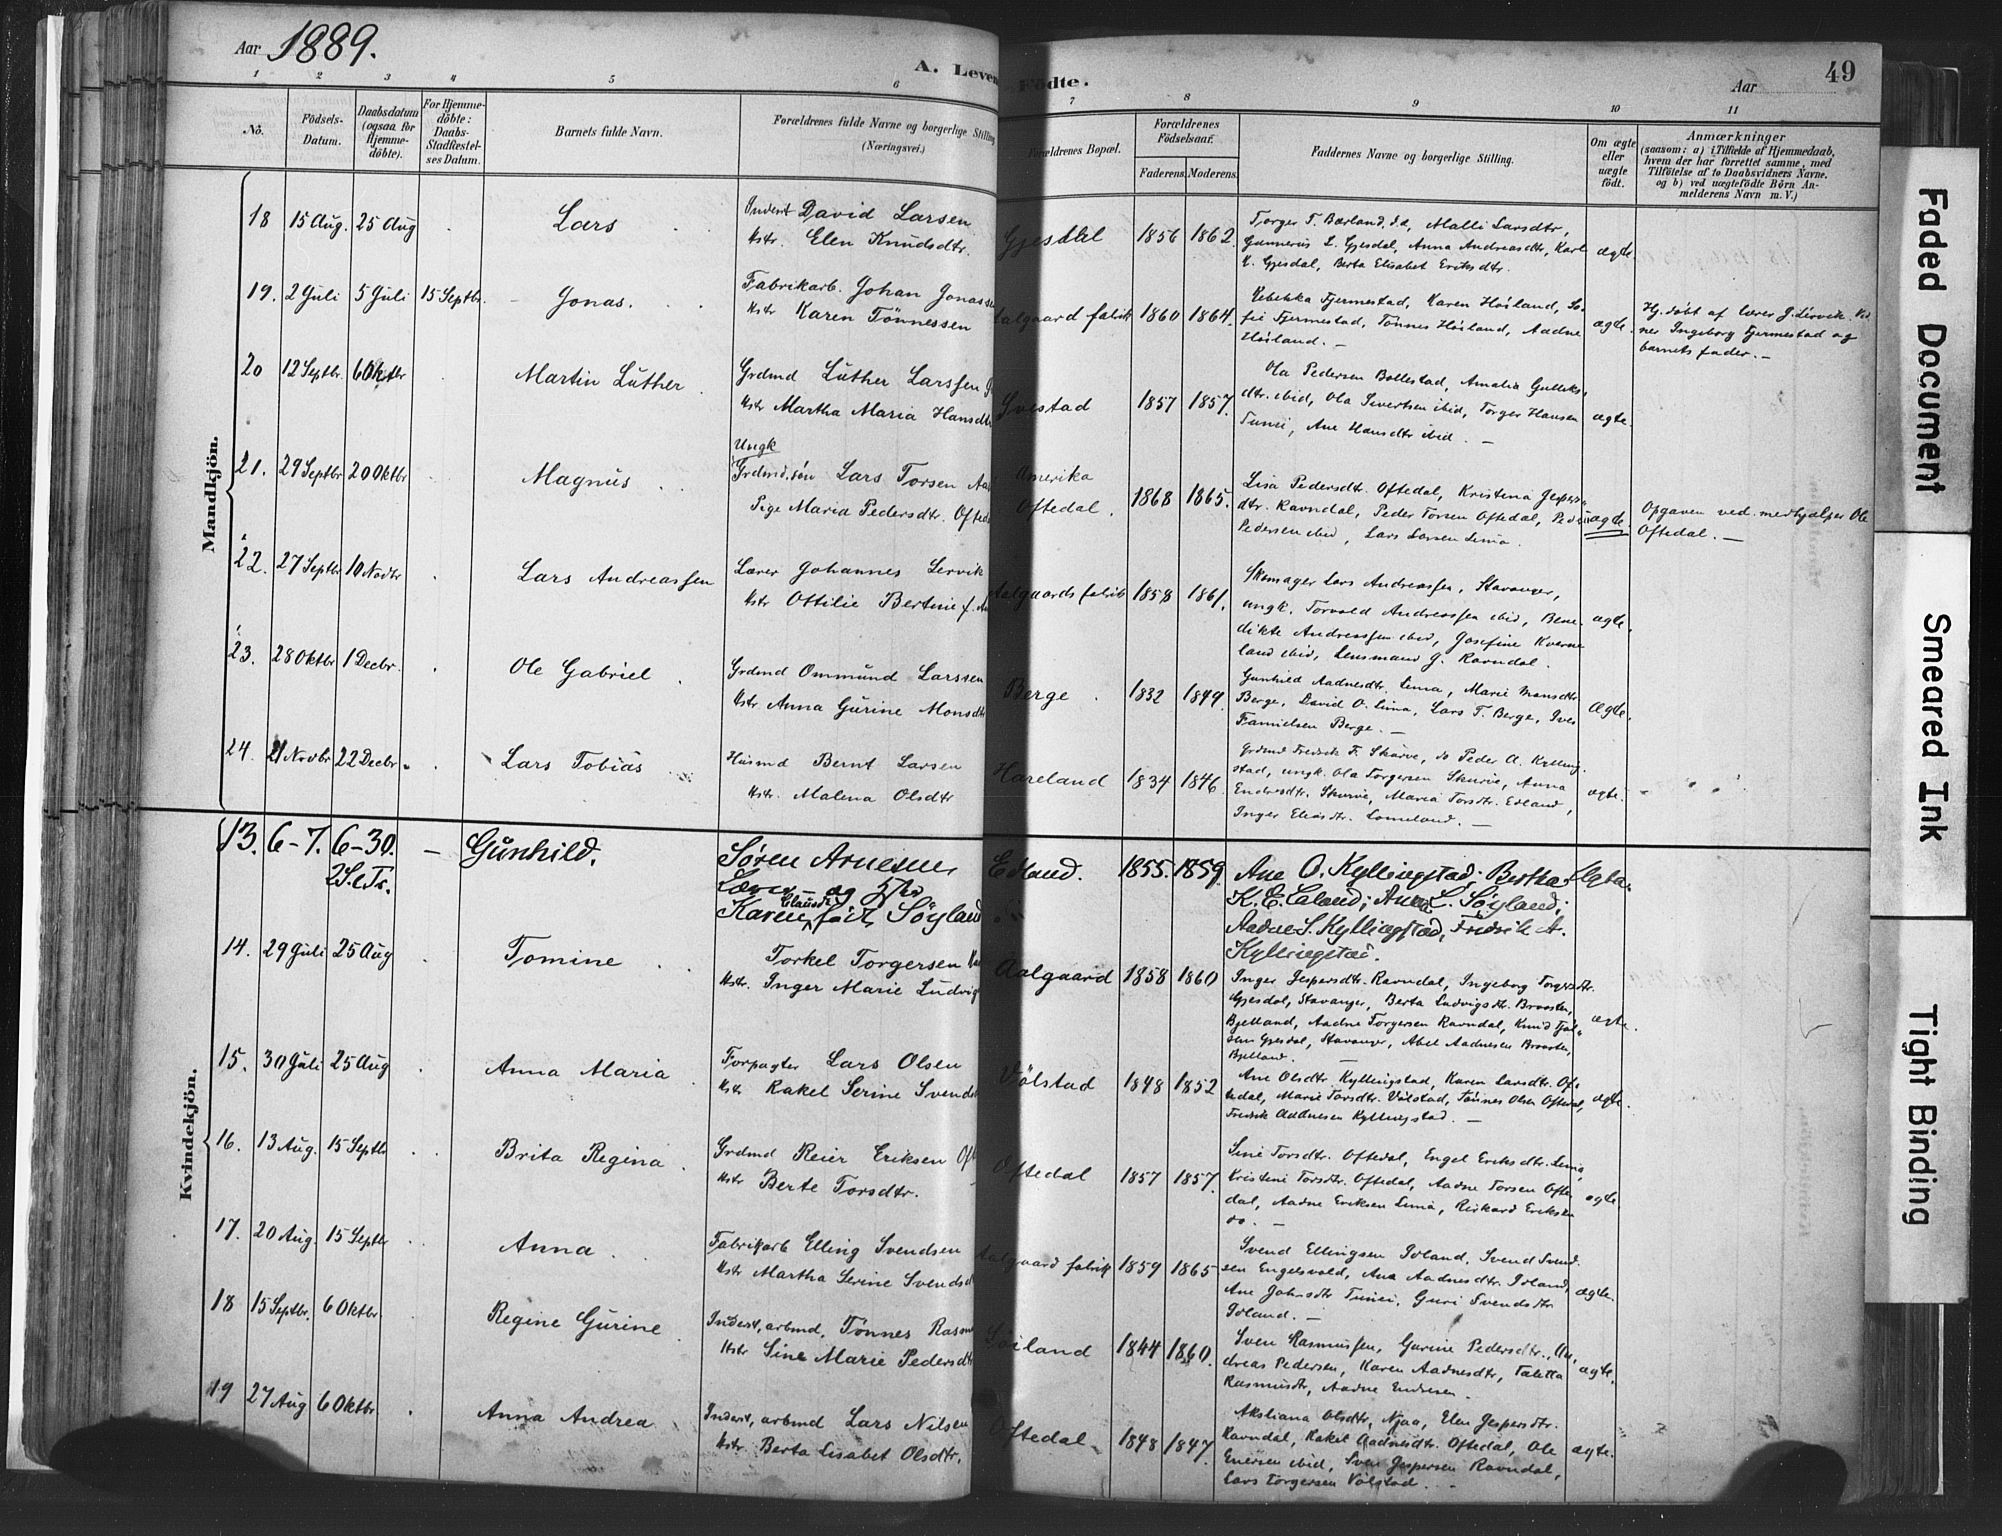 Aar 1889.
A. Levende Födte.
Aar
49
1 2 3 4 5 6 7 8 9 10 11
No.
Födsels-
Datum.
Daabsdatum
(ogsaa for
Hjemme-
döbte).
For Hjemme-
döbte:
Daabs-
Stadfæstel-
ses Datum.
Barnets fulde Navn.
Forældrenes fulde Navne og borgerlige Stilling
(Næringsvei.)
Forældrenes Bopæl.
Forældrenes
Födselsaar.
Faderens. Moderens.
Faddernes Navne og borgerlige Stilling.
Om ægte
eller
uægte
födt.
Anmærkninger
(saasom: a) i Tilfælde af Hjemmedaab,
hvem der har forrettet samme, med
Tilföielse af to Daabsvidners Navne.
og b) ved uægtefödte Börn An-
melderens Navn m. V.)
Mandkjön.
18 15 Aug. 25 Aug Lars
Inderst David Larsen
Kstr. Elen Knudsdtr.
Gjesdal 1856 1862.
Torger T. Bærland, Malli Larsdtr,
Gunnerius L. Gjesdal, Anna Andreasdtr, Karl
K. Gjesdal, Berta Elisabet Eriksdtr.
ægte.
19. 2 Juli 5 Juli 15 Septbr. Jonas.
Fabrikarb. Johan Jonassen
Kstr Karen Tönnessen
Aalgaard fabrik 1860 1864.
Rebekka Fjermestad, Karen Höiland, So-
fie Fjermestad, Tönnes Höiland, Aadne
Höiland. —
ægte.
Hj. döbt af lærer J. Lervik. Vid-
ner Ingeborg Fjermestad og
barnets fader. —
20 12 Septbr. 6 Oktbr Martin Luther
Grdmd Luther Larssen
Kstr Martha Maria Hansdtr
1857 1857.
Ola Pedersen Bollestad, Amalia Gulleks-
dtr. ibid, Ola Sivertsen ibid, Torger Hansen
Tunei, Ane Hansdtr ibid. —
ægte.
21. 29 Septbr 20 Oktbr Magnus
Ungk
Grdmd.sön Lars Torsen
Pige Maria Pedersdtr. Oftedal
Amerika
Oftedal. 1868 1865.
Lisa Pedersdtr. Oftedal, Kristina Jespers-
dtr. Ravndal, Peder Torsen Oftedal, Peder
Pedersen ibid, Lars Larsen Lima.
uægte.
Opgaven ved medhjælper Ole
Oftedal. —
22. 27 Septbr 10 Novbr Lars Andreassen
Lærer Johannes Lervik
Kstr Ottilie Bertine f.
Aalgaards fabrik 1858 1861.
Skomager Lars Andreassen, Stavanger,
ungk. Torvald Andreassen ibid, Bene-
dikte Andreassen ibid, Josefine Kverne-
land ibid, Lensmand J. Ravndal.
ægte.
23. 28 Oktbr 1 Decbr. Ole Gabriel
Grdmd Ommund Larssen
Kstr Anna Gurine Monsdtr
Berge. 1832 1849.
Gunhild Aadnesdtr. Lima, Marie Monsdtr
Berge, David O. Lima, Lars T. Berge, Ives
Berge. —
Ægte.
24. 21 Novbr 22 Decbr. Lars Tobias
Husmd Bernt Larsen
Kstr. Malena Olsdtr
Hareland 1834 1846.
Grdmd Fredrik F. Skurve, do Peder A. Kylling-
stad, ungk. Ola Torgersen Skurve, Anna
Endresdtr. Skurve, Maria Torsdtr. Edland,
Inger Eliasdtr. Lomeland. —
ægte.
Kvindekjön.
13. 6-7. 6-30. — Gunhild.
2 S. e. Tr.
Sören Arnesen
Lærer — og Hst
Karen Clausdtr födt Söyland
Edland. 1855. 1859.
Ane O. Kyllingstad; Bertha
K. E. Caland; Anna L. Söyland;
Aadne S. Kyllingstad, Fredrik A.
Kyllingstad.
Ægte.
14. 29 Juli 25 Aug Tomine
Torkel Torgersen
Kstr. Inger Marie Ludvigs
Aalgaard 1858 1860
Inger Jespersdtr. Ravndal, Ingeborg Torgersdtr.
Gjesdal, Stavanger, Berta Ludvigsdtr. Braasten,
Bjelland, Aadne Torgersen Ravndal, Knud
Gjesdal, Stavanger, Abel Aadnesen Braasten,
Bjelland. —
ægte.
15. 30 Juli 25 Aug Anna Maria
Forpagter Lars Olsen
Kstr Rakel Serine Svends
Völstad 1848 1852
Ane Olsdtr Kyllingstad, Karen Larsdtr. Of-
tedal, Marie Torsdtr. Völstad, Tönnes Olsen Oftedal,
Fredrik Aadnesen Kyllingstad. —
ægte.
16. 13 Aug. 15 Septbr Brita Regina
Grdmd Reier Eriksen
Kstr Berte Torsdtr.
Oftedal 1857 1857.
Sine Torsdtr. Oftedal, Engel Eriksdtr. Lima,
Kristine Torsdtr. Oftedal, Aadne Torsen Ofte-
dal, Aadne Eriksen Lima, Rikard Eriksen
do. —
ægte.
17. 20 Aug. 15 Septbr Anna
Fabrikarb Elling Svendsen
Kstr Martha Serine Svendsd
Aalgaard fabrik 1859 1865
Svend Ellingsen Idland, Svend Svend-
sen Engelsvold, Ane Aadnesdtr Idland,
Ane Johnsdtr Tunei, Guri Svendsdtr
Idland. —
ægte.
18 15 Septbr. 6 Oktbr Regine Gurine
Inderst, arbmd, Tönnes Rasm
Kstr Sine Marie Pedersdtr
Söiland 1844 1860.
Sven Rasmussen, Gurine Pedersdtr., An-
dreas Pedersen, Karen Aadnesdtr, Taletta
Rasmusdtr, Aadne Endresen.
ægte.
19 27 Aug 6 Oktbr Anna Andrea
Inderst, arbmd Lars Nilsen
Kstr. Berta Lisabet Olsdtr.
Oftedal 1848 1847.
Olsdtr, Njaa, Elen Jespersdtr.
Ravndal, Rakel Aadnesdtr. Oftedal, Ole
ibid, Sven Jespersen Ravndal,
Lars Torgersen Völstad.
ægte.
Faded Document
Smeared Ink
Tight Binding